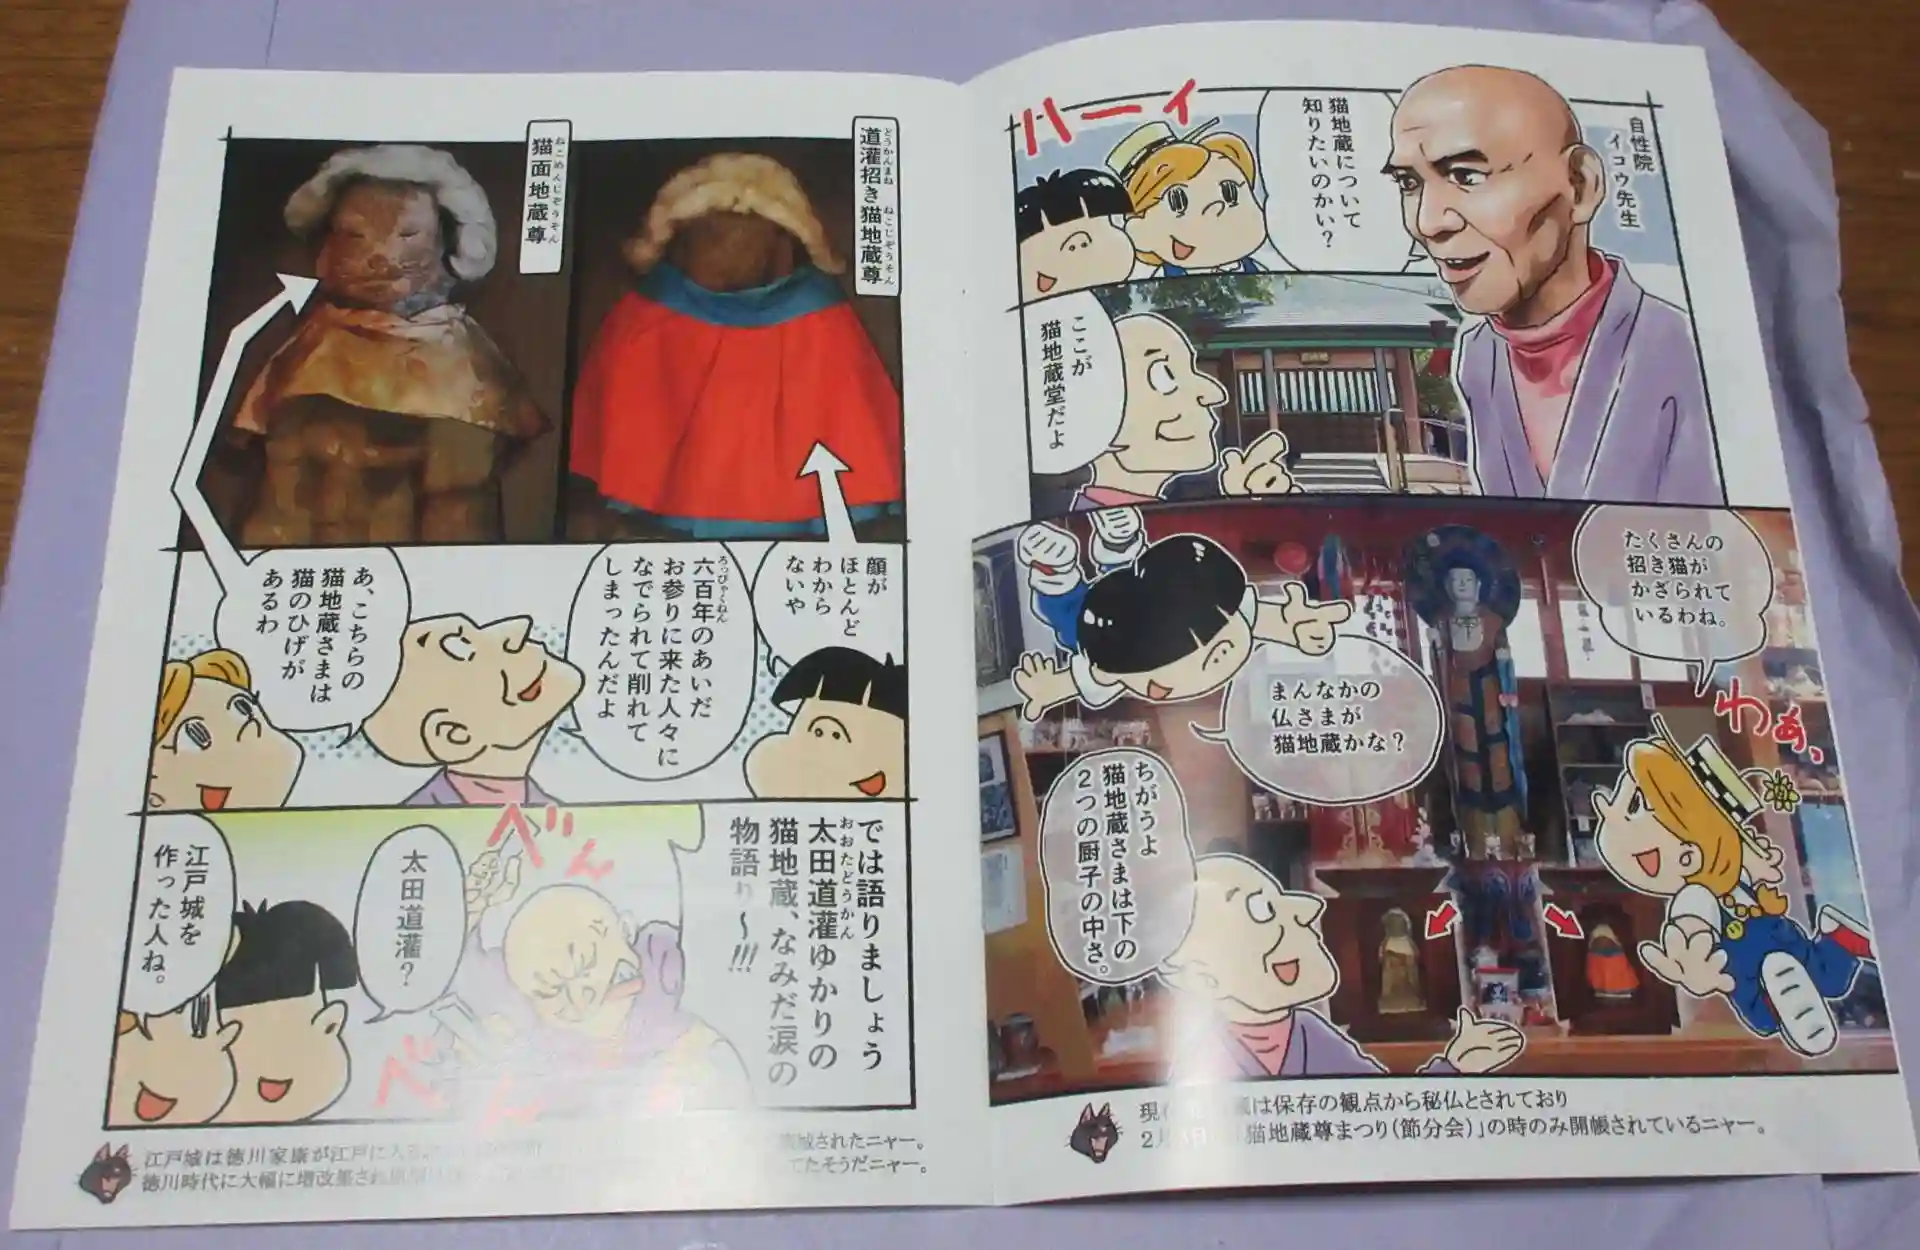 自性院
イコウ先生
猫地蔵について
知りたいのかい？
ハーイ
ここが
猫地蔵堂だよ
たくさんの
招き猫が
かざられて
いるわね。
わぁ、
まんなかの
仏さまが
猫地蔵かな？
ちがうよ
猫地蔵さまは下の
２つの厨子の中さ。
は保存の観点から秘仏とされており
猫地蔵尊まつり（節分会）」の時のみ開帳されているニャー。
道灌招き猫地蔵尊
どうかんまね ねこじぞうそん
猫面地蔵尊
ねこめんじぞうそん
顔が
ほとんど
わから
ないや
六百年のあいだ
ろっぴゃくねん
お参りに来た人々に
なでられて削れて
しまったんだよ
あ、こちらの
猫地蔵さまは
猫のひげが
あるわ
では語りましょう
太田道灌ゆかりの
おおたどうかん
猫地蔵、なみだ涙の
物語り〜!!!
べん
べん
太田道灌？
江戸城を
作った人ね。
江戸城は徳川家康が江戸に入る
築城されたニャー。
徳川時代に大幅に増改築され
てたそうだニャー。